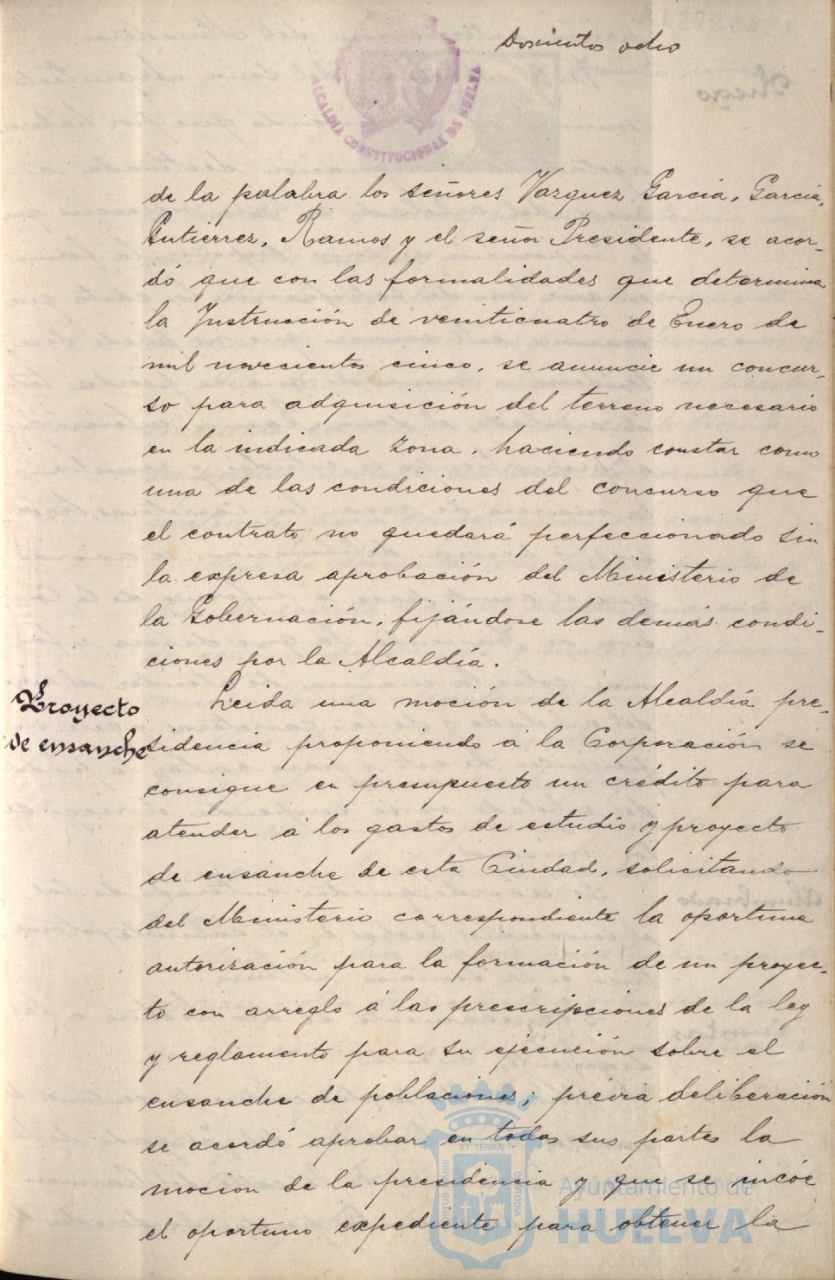 Doscientos ocho
ALCALDÍA CONSTITUCIONAL DE HUELVA
de la palabra los señores Vazquez García, García,
Gutierrez, Ramos y el señor Presidente, se acor-
dó que con las formalidades que determina
la Instrucción de veinticuatro de Enero de
mil novecientos cinco, se anuncie un concur-
so para adquisición del terreno necesario
en la indicada zona, haciendo constar como
una de las condiciones del concurso que
el contrato no quedará perfeccionado sin
la expresa aprobación del Ministerio de
la Gobernación, fijándose las demás condi-
ciones por la Alcaldía.
Proyecto
de ensanche
Leida una moción de la Alcaldía pre-
sidencia proponiendo á la Corporación se
consigue en presupuesto un crédito para
atender á los gastos de estudio y proyecto
de ensanche de esta Ciudad, solicitando
del Ministerio correspondiente la oportuna
autorización para la formación de un proyec-
to con arreglo á las prescripciones de la ley
y reglamento para su ejecución sobre el
ensanche de poblaciones; prévia deliberación
se acordó aprobar en todas sus partes la
moción de la presidencia y que se incóe
el oportuno expediente para obtener la
Ayuntamiento de
HUELVA